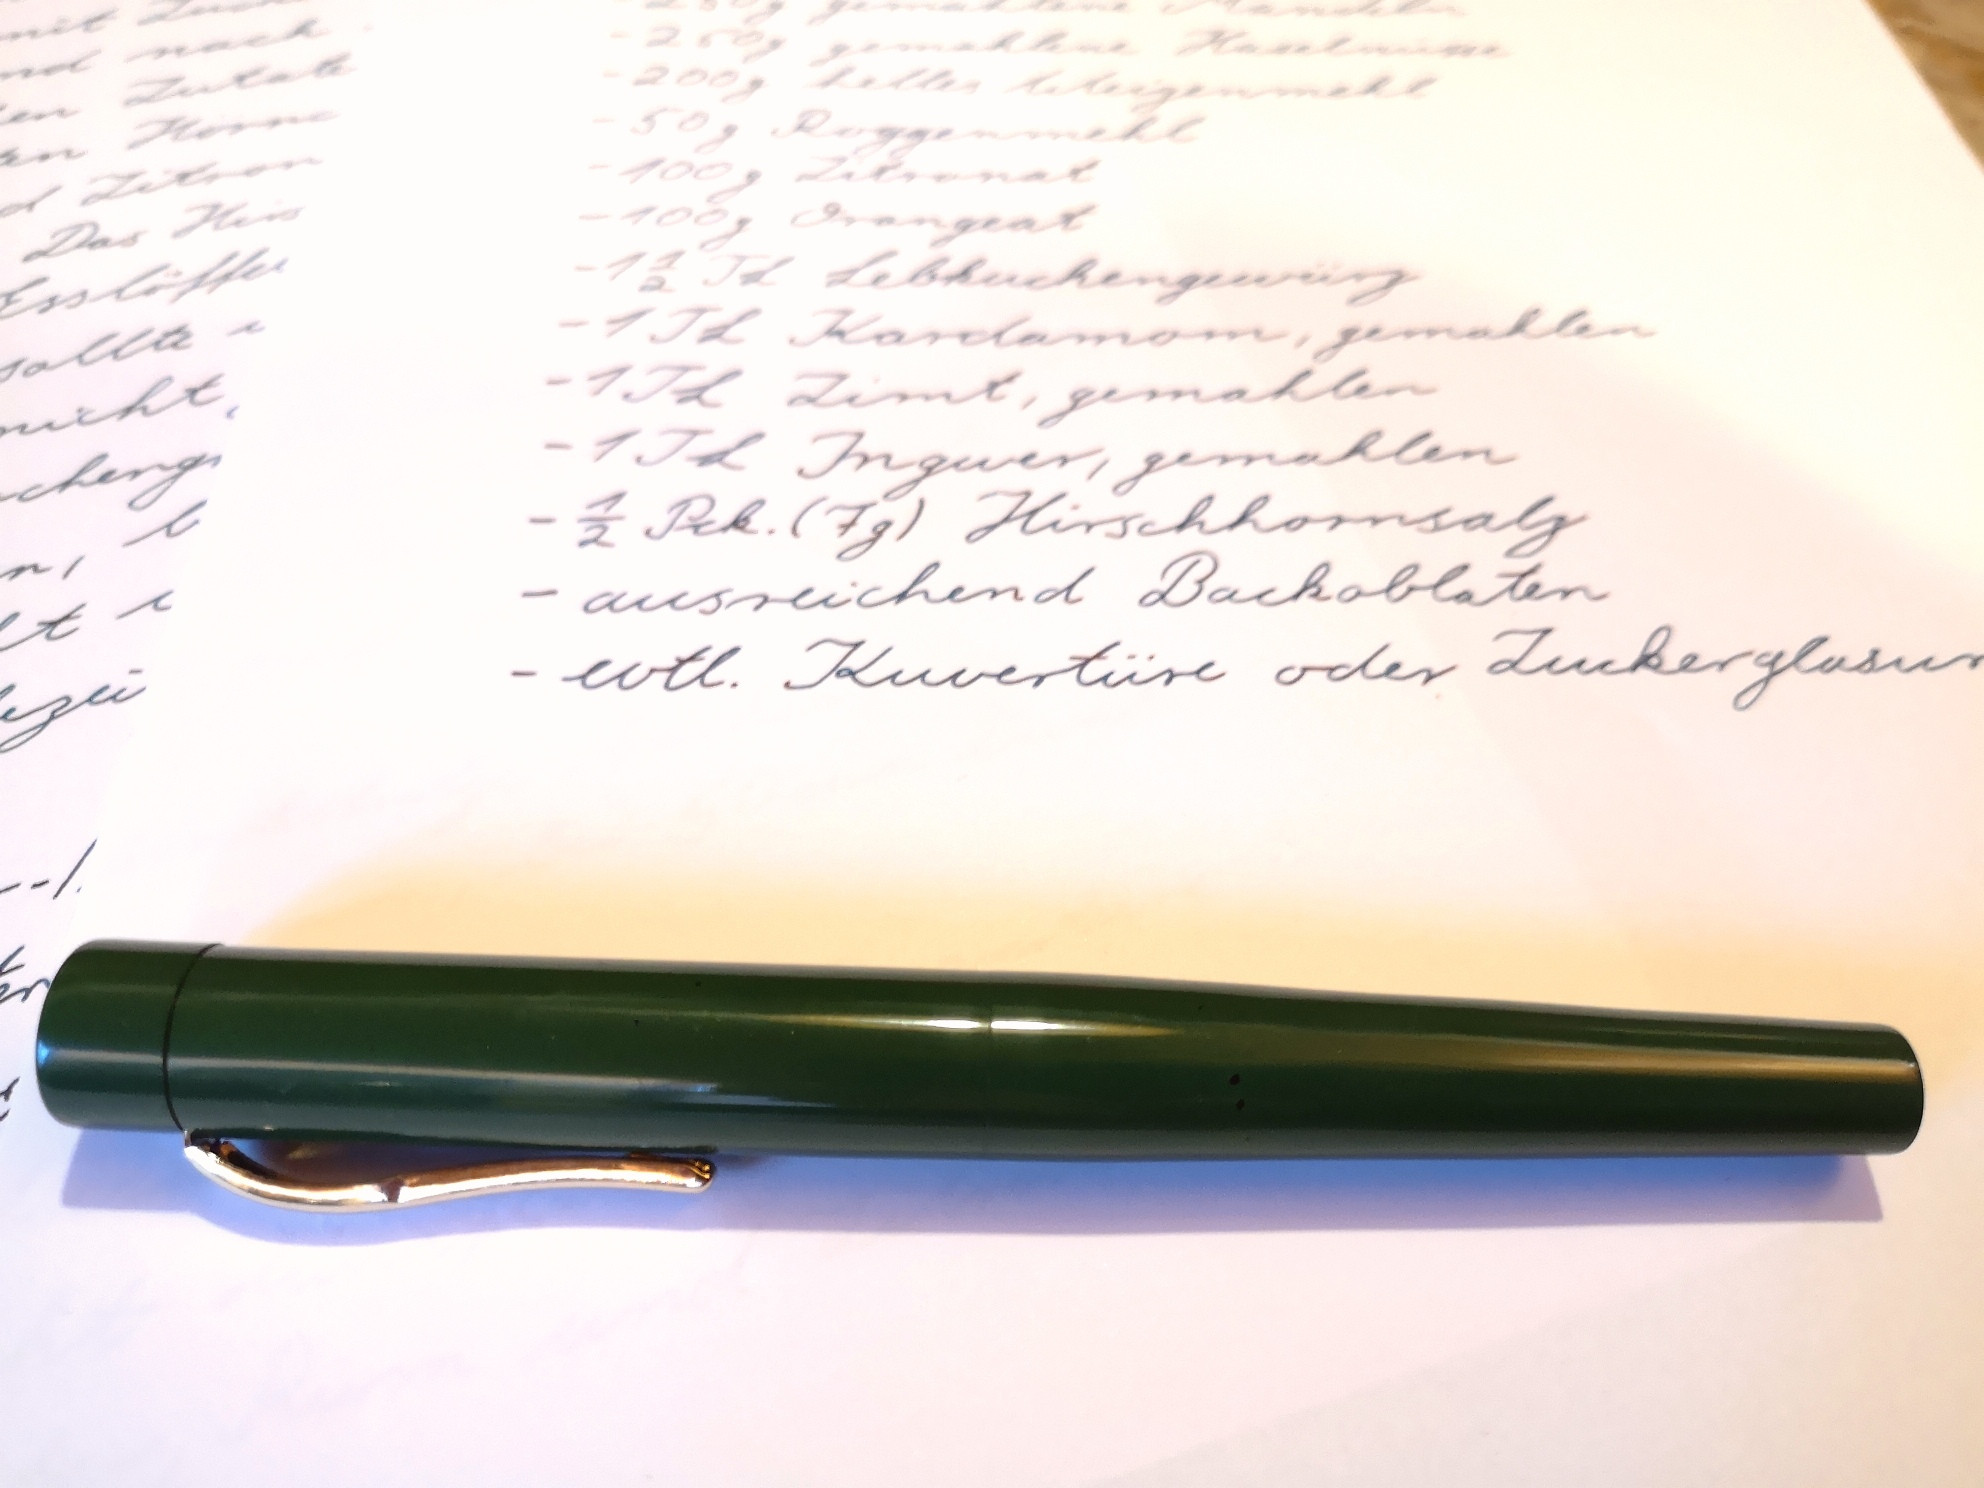 mit Zuck
nd nach
en Zutat
en Hörnc
d Zitron
Das Hirs
Esslöffe
sollte
nicht,
cheng
-250g gemahlene Mandeln
-250g gemahlene Haselnüsse
-200g helles Weizenmehl
-50g Roggenmehl
-100g Zitronat
-100g Orangeat
-1 1/2 TL Lebkuchengewürz
-1 TL Kardamom, gemahlen
-1 TL Zimt, gemahlen
-1 TL Ingwer, gemahlen
- 1/2 Pck. (7g) Hirschhornsalz
- ausreichend Backoblaten
- evtl. Kuvertüre oder Zuckerglasur